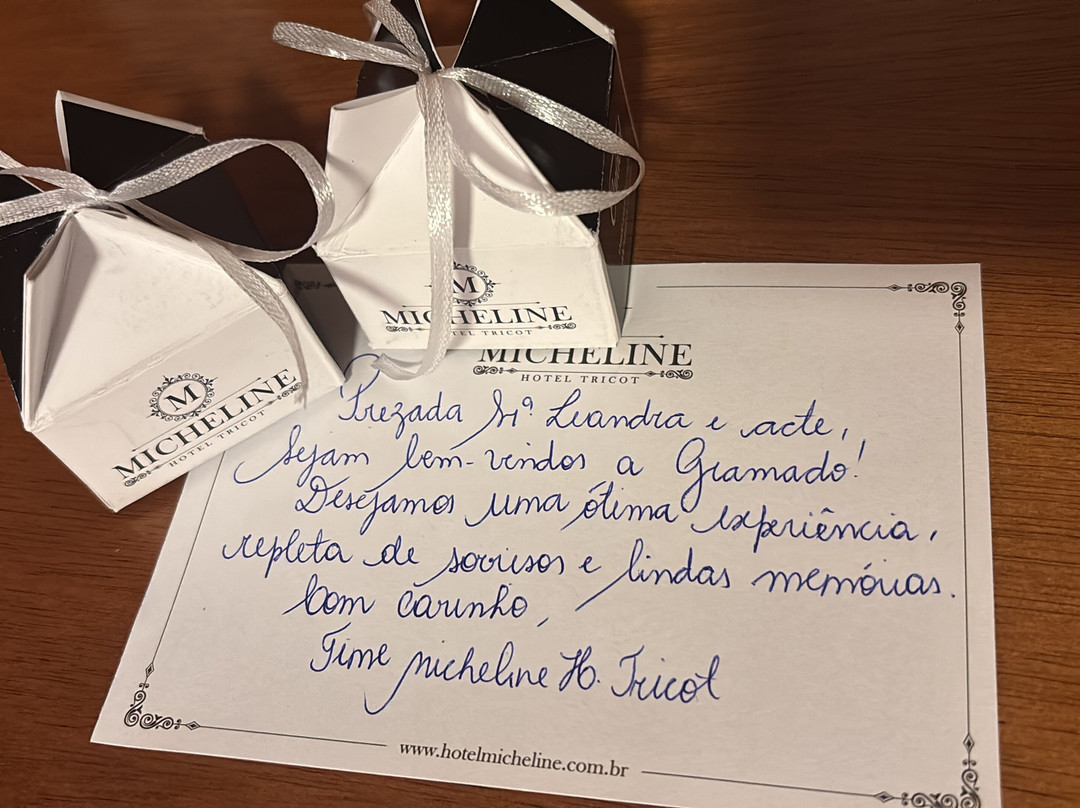 M
MICHELINE
HOTEL TRICOT
M
MICHELINE
HOTEL TRICOT
MICHELINE
HOTEL TRICOT
Prezada Srª Leandra e acte,
Sejam bem-vindos a Gramado!
Desejamos uma ótima experiência,
repleta de sorrisos e lindas memórias.
Com carinho,
Time Micheline H. Tricot
www.hotelmicheline.com.br